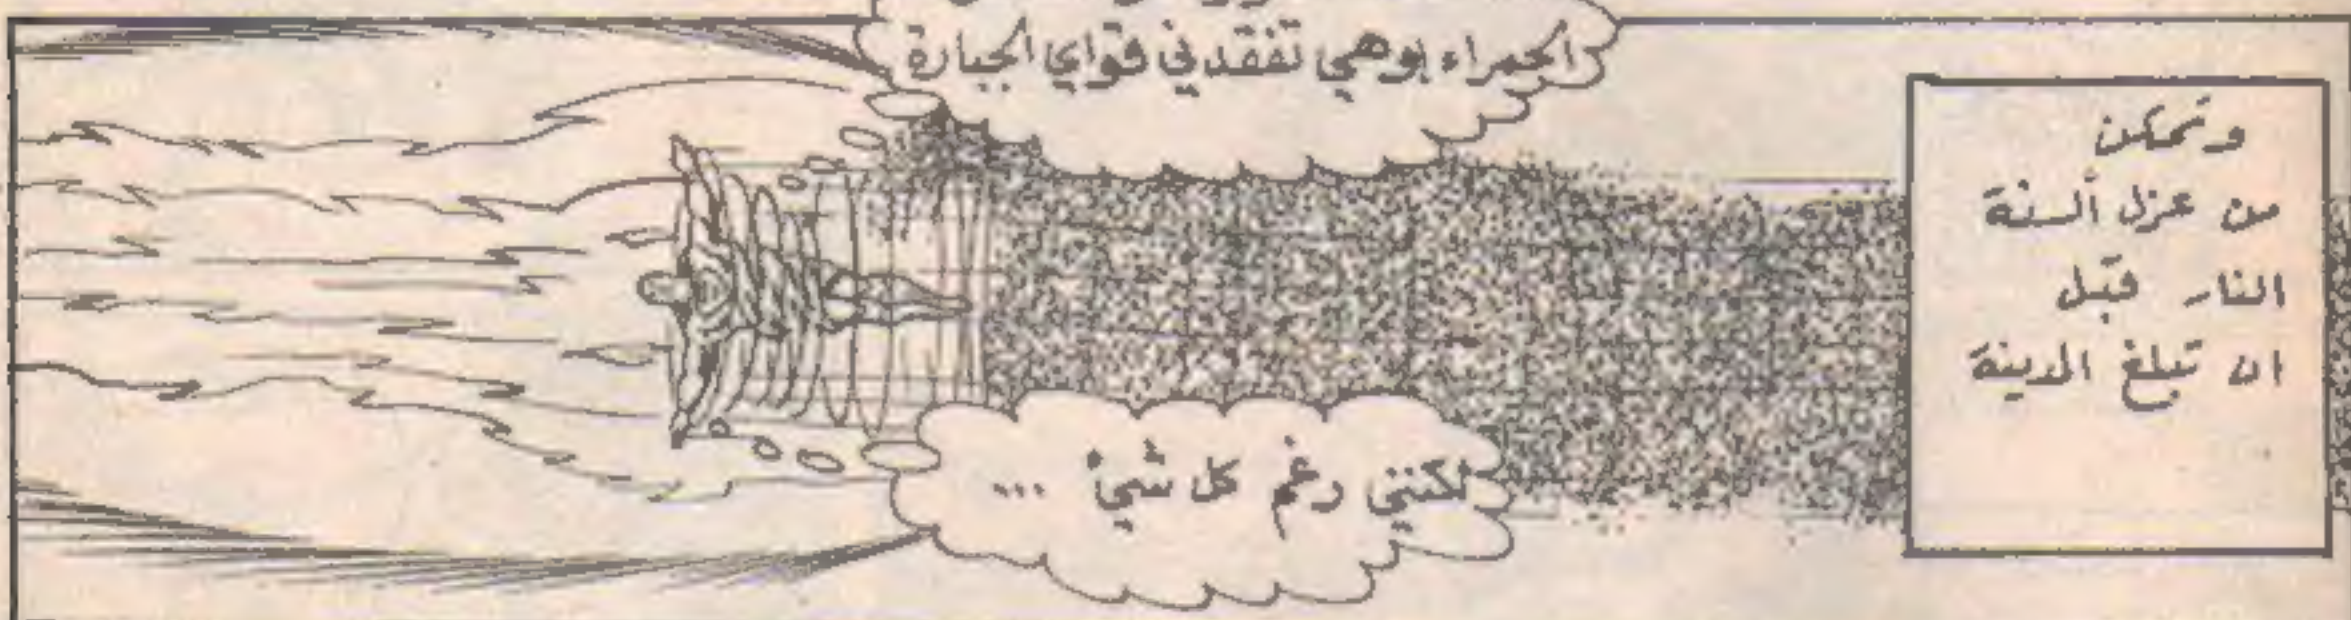 وتمكن
من عزل ألسنة
النار قبل
ان تبلغ المدينة
الحمراء وهي تفقدني قواي الجبارة
لكنني رغم كل شيء ...